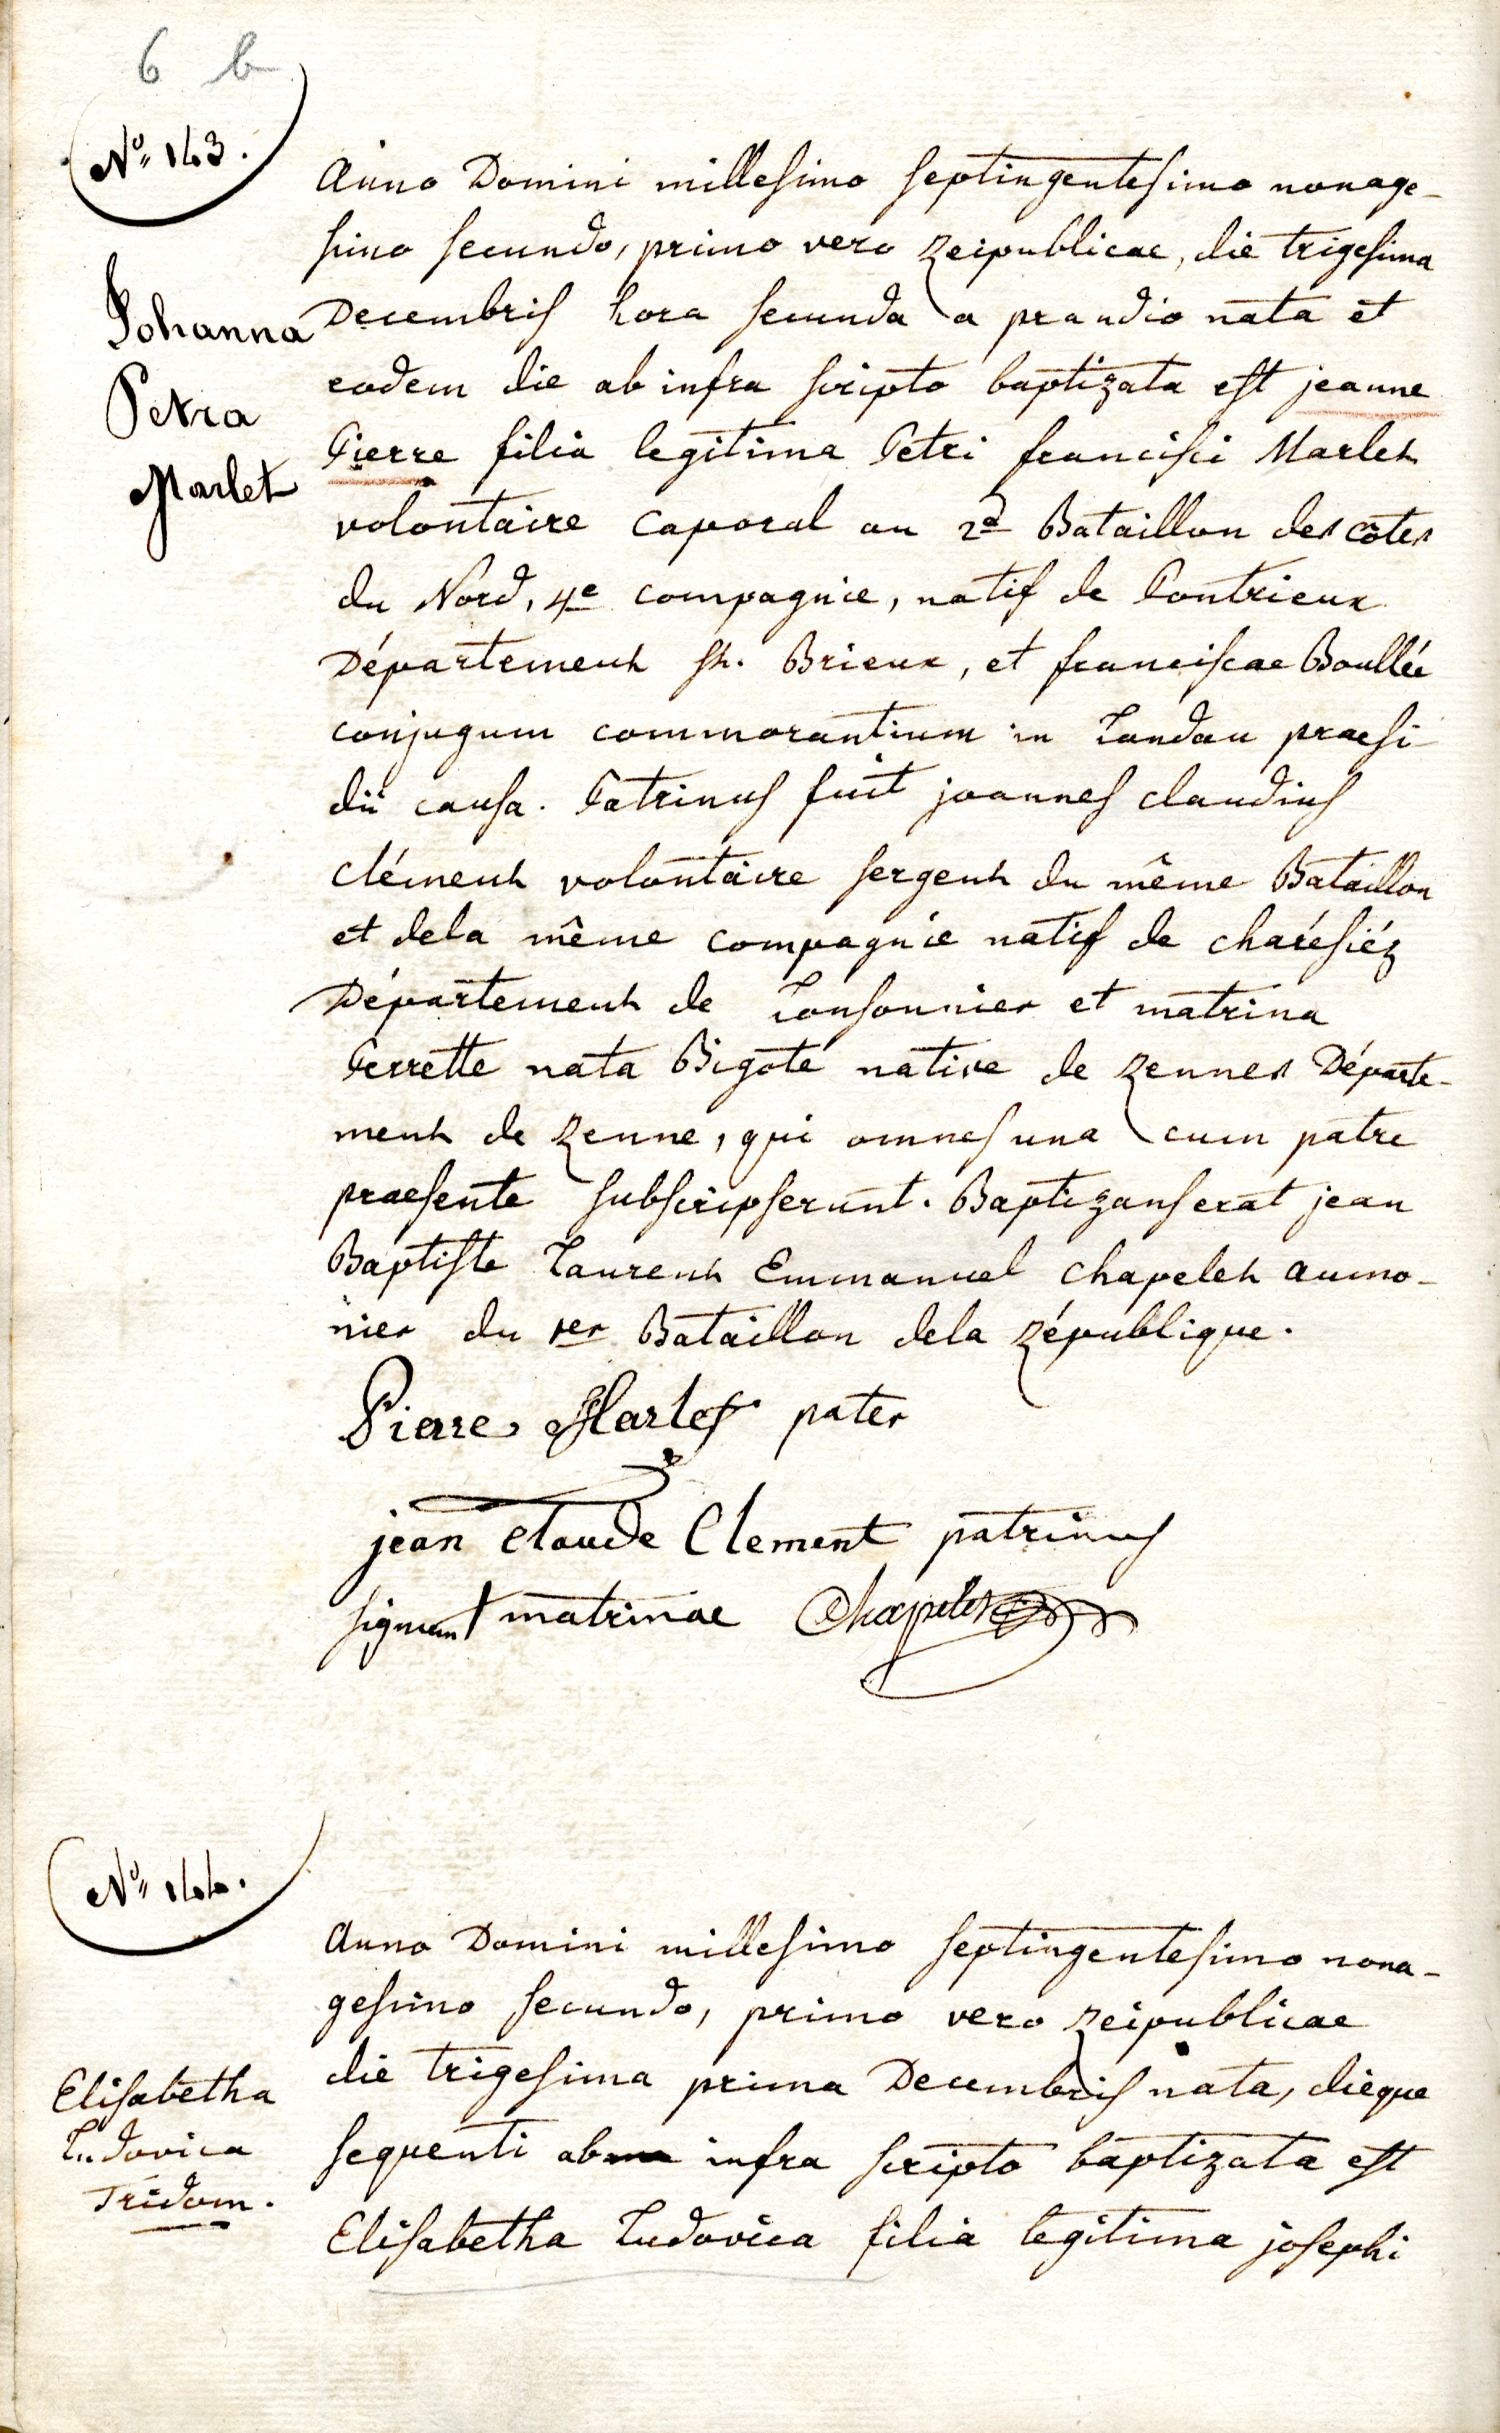 6 b
Nº 143.
Johanna
Petra
Marlet
Anno Domini millesimo septingentesimo nonage-
simo secundo, primo vero Reipublicae, die trigesima
Decembris hora secunda a prandio nata et
eodem die ab infra scripto baptizata est jeanne
Pierre filia legitima Petri francisci Marlet
volontaire caporal au 2d Bataillon des côtes
du Nord, 4e compagnie, natif de Pontrieux
Département st. Brieux, et franciscae Boullée
conjugum commorantium in Landau praesi-
dii causa. Patrinus fuit joannes claudius
clément volontaire sergent du même Bataillon
et dela même compagnie natif de charésiéz
Département de Lonsonnier et matrina
Perrette nata Bigote native de Rennes Départe-
ment de Renne, qui omnes una cum patre
praesente subscripserunt. Baptizans erat jean
Baptiste Laurent Emmanuel chapelet aumo-
nier du 1er Bataillon dela République.
Pierre Marlet pater
jean claude Clement patrinus
signum † matrinae Chapelet
Nº 144.
Elisabetha
Ludovica
Tridom.
Anno Domini millesimo septingentesimo nona-
gesimo secundo, primo vero Reipublicae
die trigesima prima Decembris nata, dieque
sequenti ab infra scripto baptizata est
Elisabetha Ludovica filia legitima josephi